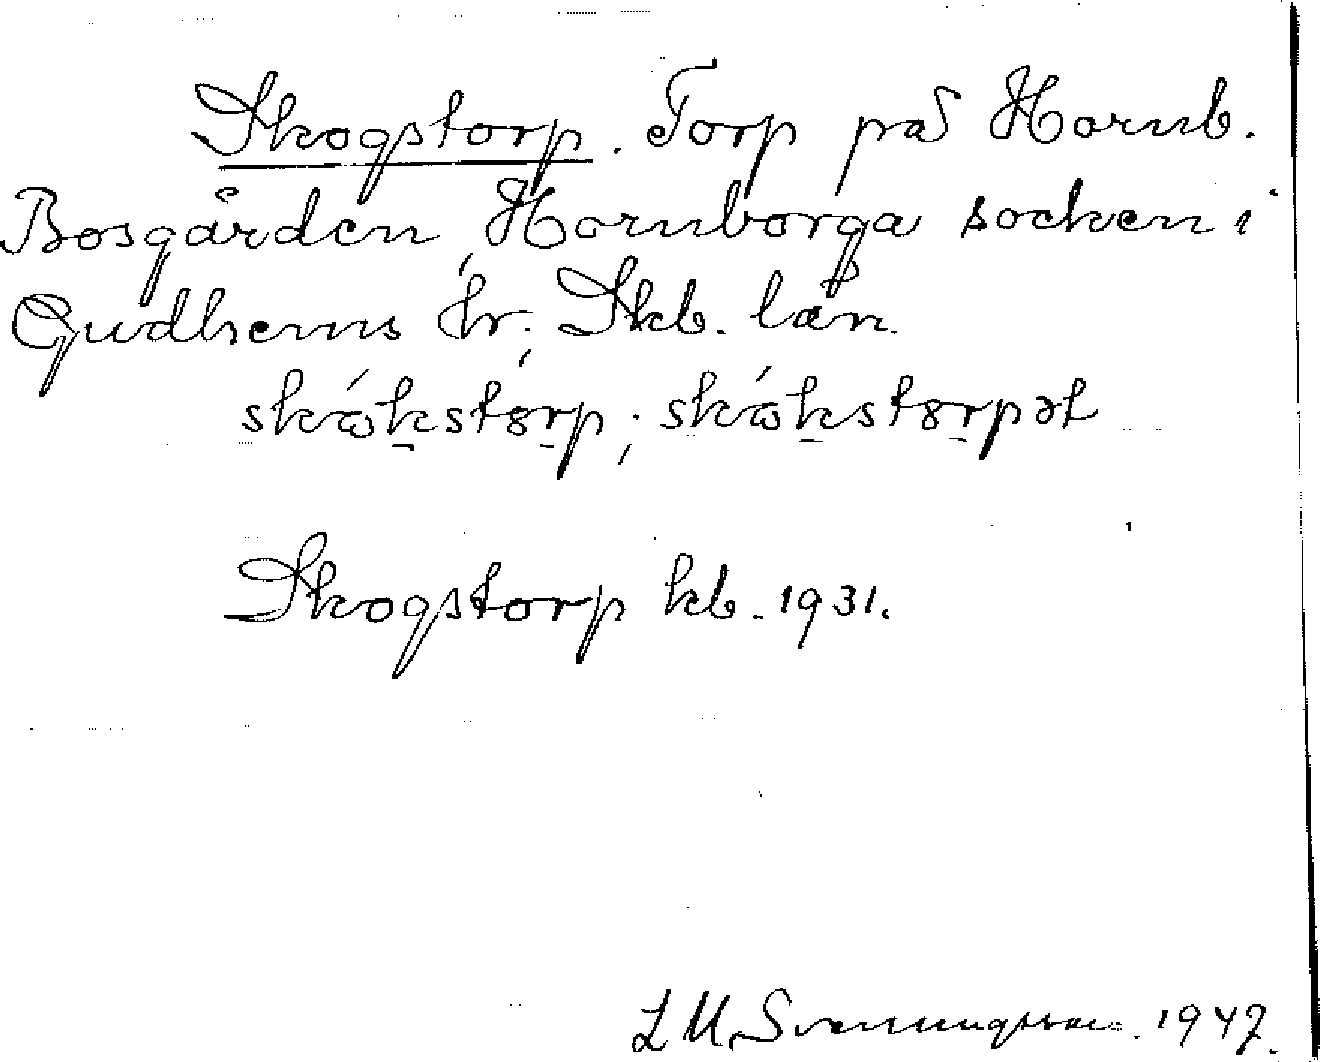 Skogstorp. Torp på Hornb.
Bosgården, Hornborga socken i
Gudhems hr, Skb. län.
skókstorp; skókstorpət
Skogstorp kb. 1931.
L M Svenungsson. 1947.